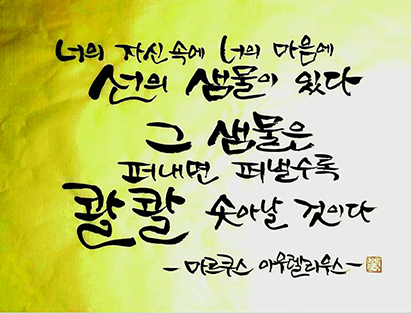 너의 자신 속에 너의 마음에
선의 샘물이 있다
그 샘물은
퍼내면 퍼낼수록
콸콸 솟아날 것이다
- 마르쿠스 아우렐리우스 -